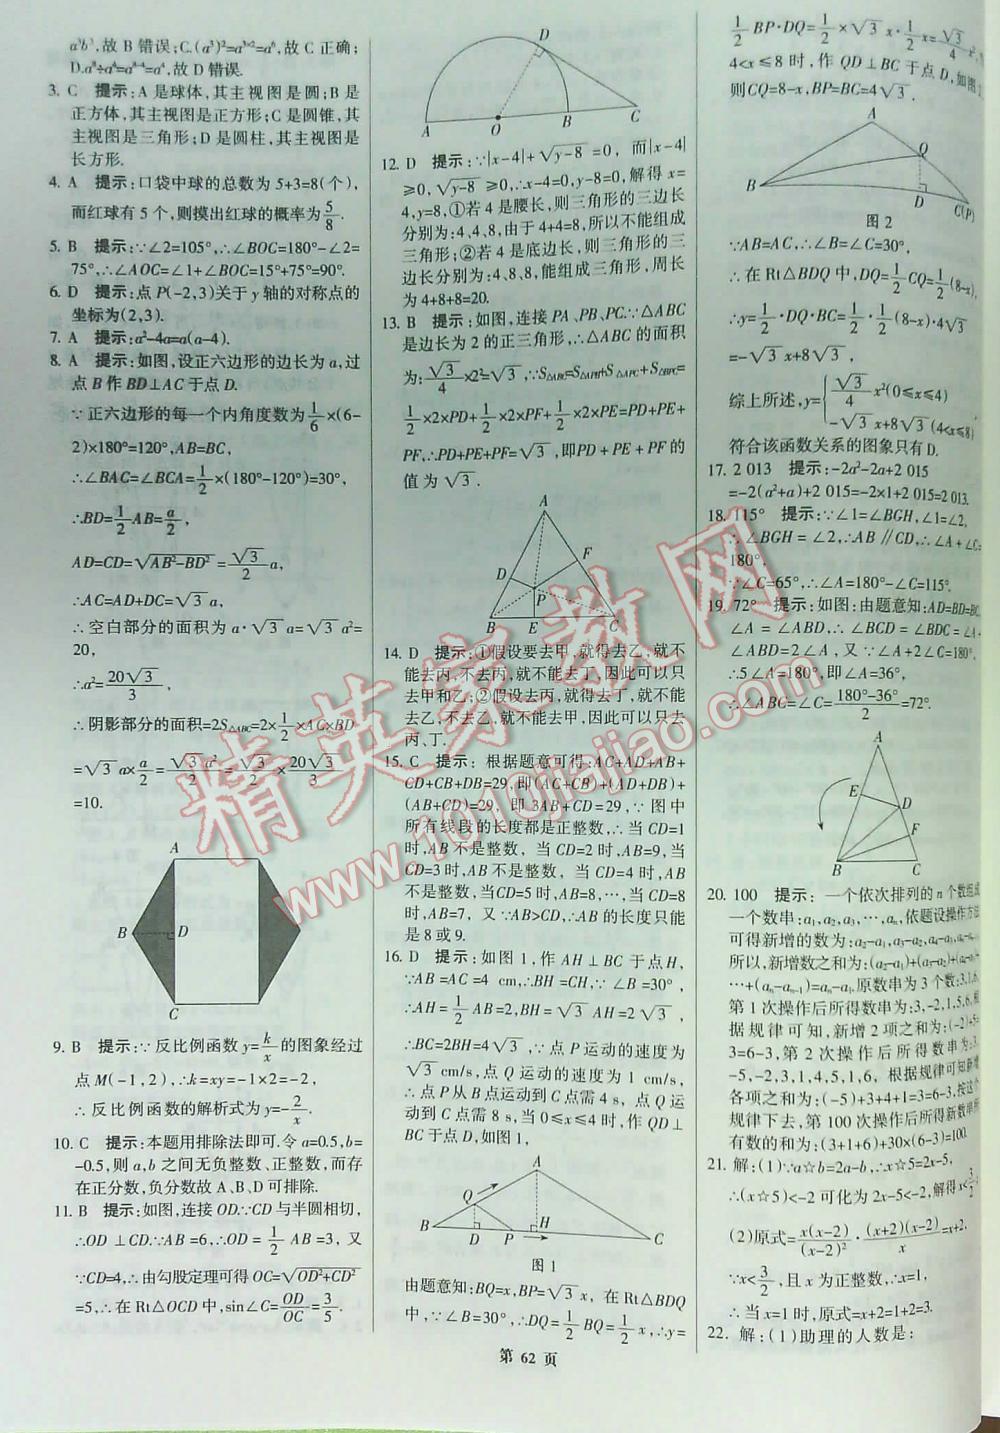 a³b³,故 B 错误;C.(a³)²=a³ˣ²=a⁶,故 C 正确;
D.a⁸÷a⁴=a⁸⁻⁴=a⁴,故 D 错误.
3. C 提示:A 是球体,其主视图是圆;B 是
正方体,其主视图是正方形;C 是圆锥,其
主视图是三角形;D 是圆柱,其主视图是
长方形.
4. A 提示:口袋中球的总数为 5+3=8(个),
而红球有 5 个,则摸出红球的概率为5/8.
5. B 提示:∵∠2=105°,∴∠BOC=180°-∠2=
75°,∴∠AOC=∠1+∠BOC=15°+75°=90°.
6. D 提示:点 P(-2,3)关于 y 轴的对称点的
坐标为(2,3).
7. A 提示:a²-4a=a(a-4).
8. A 提示:如图,设正六边形的边长为 a,过
点 B 作 BD⊥AC 于点 D.
∵ 正六边形的每一个内角度数为1/6×(6-
2)×180°=120°,AB=BC,
∴∠BAC=∠BCA=1/2×(180°-120°)=30°,
∴BD=1/2AB=a/2,
AD=CD=√(AB²-BD²)=√3/2 a,
∴AC=AD+DC=√3 a,
∴空白部分的面积为 a·√3 a=√3 a²=
20,
∴a²=20√3/3,
∴阴影部分的面积=2S△ABC=2×1/2×AC×BD
=√3 a×a/2=√3 a²/2=√3/2×20√3/3
=10.
A
B D
C
9. B 提示:∵反比例函数 y=k/x的图象经过
点 M(-1,2),∴k=xy=-1×2=-2,
∴反比例函数的解析式为 y=-2/x.
10. C 提示:本题用排除法即可.令 a=0.5,b=
-0.5,则 a,b 之间无负整数、正整数,而存
在正分数,负分数故 A、B、D 可排除.
11. B 提示:如图,连接 OD.∵CD 与半圆相切,
∴OD⊥CD.∵AB=6,∴OD=1/2AB=3,又
∵CD=4,∴由勾股定理可得 OC=√(OD²+CD²)
=5,∴在 Rt△OCD 中,sin∠C=OD/OC=3/5.
D
A O B C
12. D 提示:∵|x-4|+√(y-8)=0,而|x-4|
≥0,√(y-8)≥0,∴x-4=0,y-8=0,解得 x=
4,y=8,①若 4 是腰长,则三角形的三边长
分别为:4、4、8,由于 4+4=8,所以不能组成
三角形;②若 4 是底边长,则三角形的三
边长分别为:4、8、8,能组成三角形,周长
为 4+8+8=20.
13. B 提示:如图,连接 PA、PB、PC.∵△ABC
是边长为 2 的正三角形,∴△ABC 的面积
为:√3/4×2²=√3,∵S△ABC=S△APB+S△APC+S△BPC=
1/2×2×PD+1/2×2×PF+1/2×2×PE=PD+PE+
PF,∴PD+PE+PF=√3,即PD+PE+PF 的
值为√3.
A
D F
P
B E C
14. D 提示:①假设要去甲,就得去乙,就不
能去丙,不去丙,就不能去丁,因此可以只
去甲和乙;②假设去丙,就得去丁,就不能
去乙,不去乙,就不能去甲,因此可以只去
丙、丁.
15. C 提示:根据题意可得:AC+AD+AB+
CD+CB+DB=29,即(AC+CB)+(AD+DB)+
(AB+CD)=29,即3AB+CD=29,∵图中
所有线段的长度都是正整数,∴当 CD=1
时,AB 不是整数,当 CD=2 时,AB=9,当
CD=3 时,AB 不是整数,当 CD=4 时,AB
不是整数,当CD=5 时,AB=8,…,当 CD=8
时,AB=7,又∵AB>CD,∴AB 的长度只能
是 8 或 9.
16. D 提示:如图 1,作 AH⊥BC 于点H,
∵AB=AC=4 cm,∴BH=CH,∵∠B=30°,
∴AH=1/2AB=2,BH=√3 AH=2√3,
∴BC=2BH=4√3,∵点 P 运动的速度为
√3 cm/s,Q 点运动的速度为 1 cm/s,
∴点 P 从 B 点运动到 C 点需 4 s,点 Q 运
动到 C 点需 8 s,当 0≤x≤4 时,作 QD⊥
BC 于点 D,如图 1,
A
Q
B D P H C
图 1
由题意知:BQ=x,BP=√3 x,在 Rt△BDQ
中,∵∠B=30°,∴DQ=1/2BQ=1/2x,∴y=
1/2BP·DQ=1/2×√3 x·1/2x=√3/4x²,
4<x≤8 时,作 QD⊥BC 于点 D,如图
则CQ=8-x,BP=BC=4√3.
A
Q
B D C(P)
图 2
∵AB=AC,∴∠B=∠C=30°,
∴在 Rt△BDQ 中,DQ=1/2CQ=1/2(8-x),
∴y=1/2·DQ·BC=1/2·1/2(8-x)·4√3
=-√3 x+8√3,
综上所述,y={√3/4 x²(0≤x≤4)
-√3 x+8√3(4<x≤8)
符合该函数关系的图象只有 D.
17. 2 013 提示:-2a²-2a+2 015
=-2(a²+a)+2 015=-2×1+2 015=2 013.
18. 115° 提示:∵∠1=∠BGH,∠1=∠2,
∴∠BGH=∠2,∴AB∥CD,∴∠A+∠C=
180°.
∵∠C=65°,∴∠A=180°-∠C=115°.
19. 72° 提示:如图:由题意知:AD=BD=BC,
∠A=∠ABD,∴∠BCD=∠BDC=∠A+
∠ABD=2∠A,又∵∠A+∠C=180°,
∴5∠A=180°,即∠A=36°,
∴∠ABC=∠C=(180°-36°)/2=72°.
A
E
D
F
B C
20. 100 提示:一个依次排列的 n 个数组成
一个数串:a₁,a₂,a₃,…,aₙ,依题设操作方法
可得新增的数为:a₂-a₁,a₃-a₂,a₄-a₃,aₙ-aₙ₋₁
所以,新增数之和为:(a₂-a₁)+(a₃-a₂)+(a₄-a₃)+
…+(aₙ-aₙ₋₁)=aₙ-a₁.原数串为 3 个数:3,1,6,
第 1 次操作后所得数串为:3,-2,1,5,6,根
据规律可知,新增 2 项之和为:(-2)+5=
3=6-3,第 2 次操作后所得数串为:3,
-5,-2,3,1,4,5,1,6,根据规律可知新增
各项之和为:(-5)+3+4+1=3=6-3,按这个
规律下去,第 100 次操作后所得新数串所
有数的和为:(3+1+6)+30×(6-3)=100.
21. 解:(1)∵a☆b=2a-b,∴x☆5=2x-5,
∴(x☆5)<-2 可化为 2x-5<-2,解得 x<3/2.
(2)原式=x(x-2)/(x-2)²·(x+2)(x-2)/x=x+2,
∵x<3/2,且 x 为正整数,∴x=1,
∴当 x=1时,原式=x+2=1+2=3.
22. 解:(1)助理的人数是:
第 62 页
精英家教网
www.1010jiajiao.com